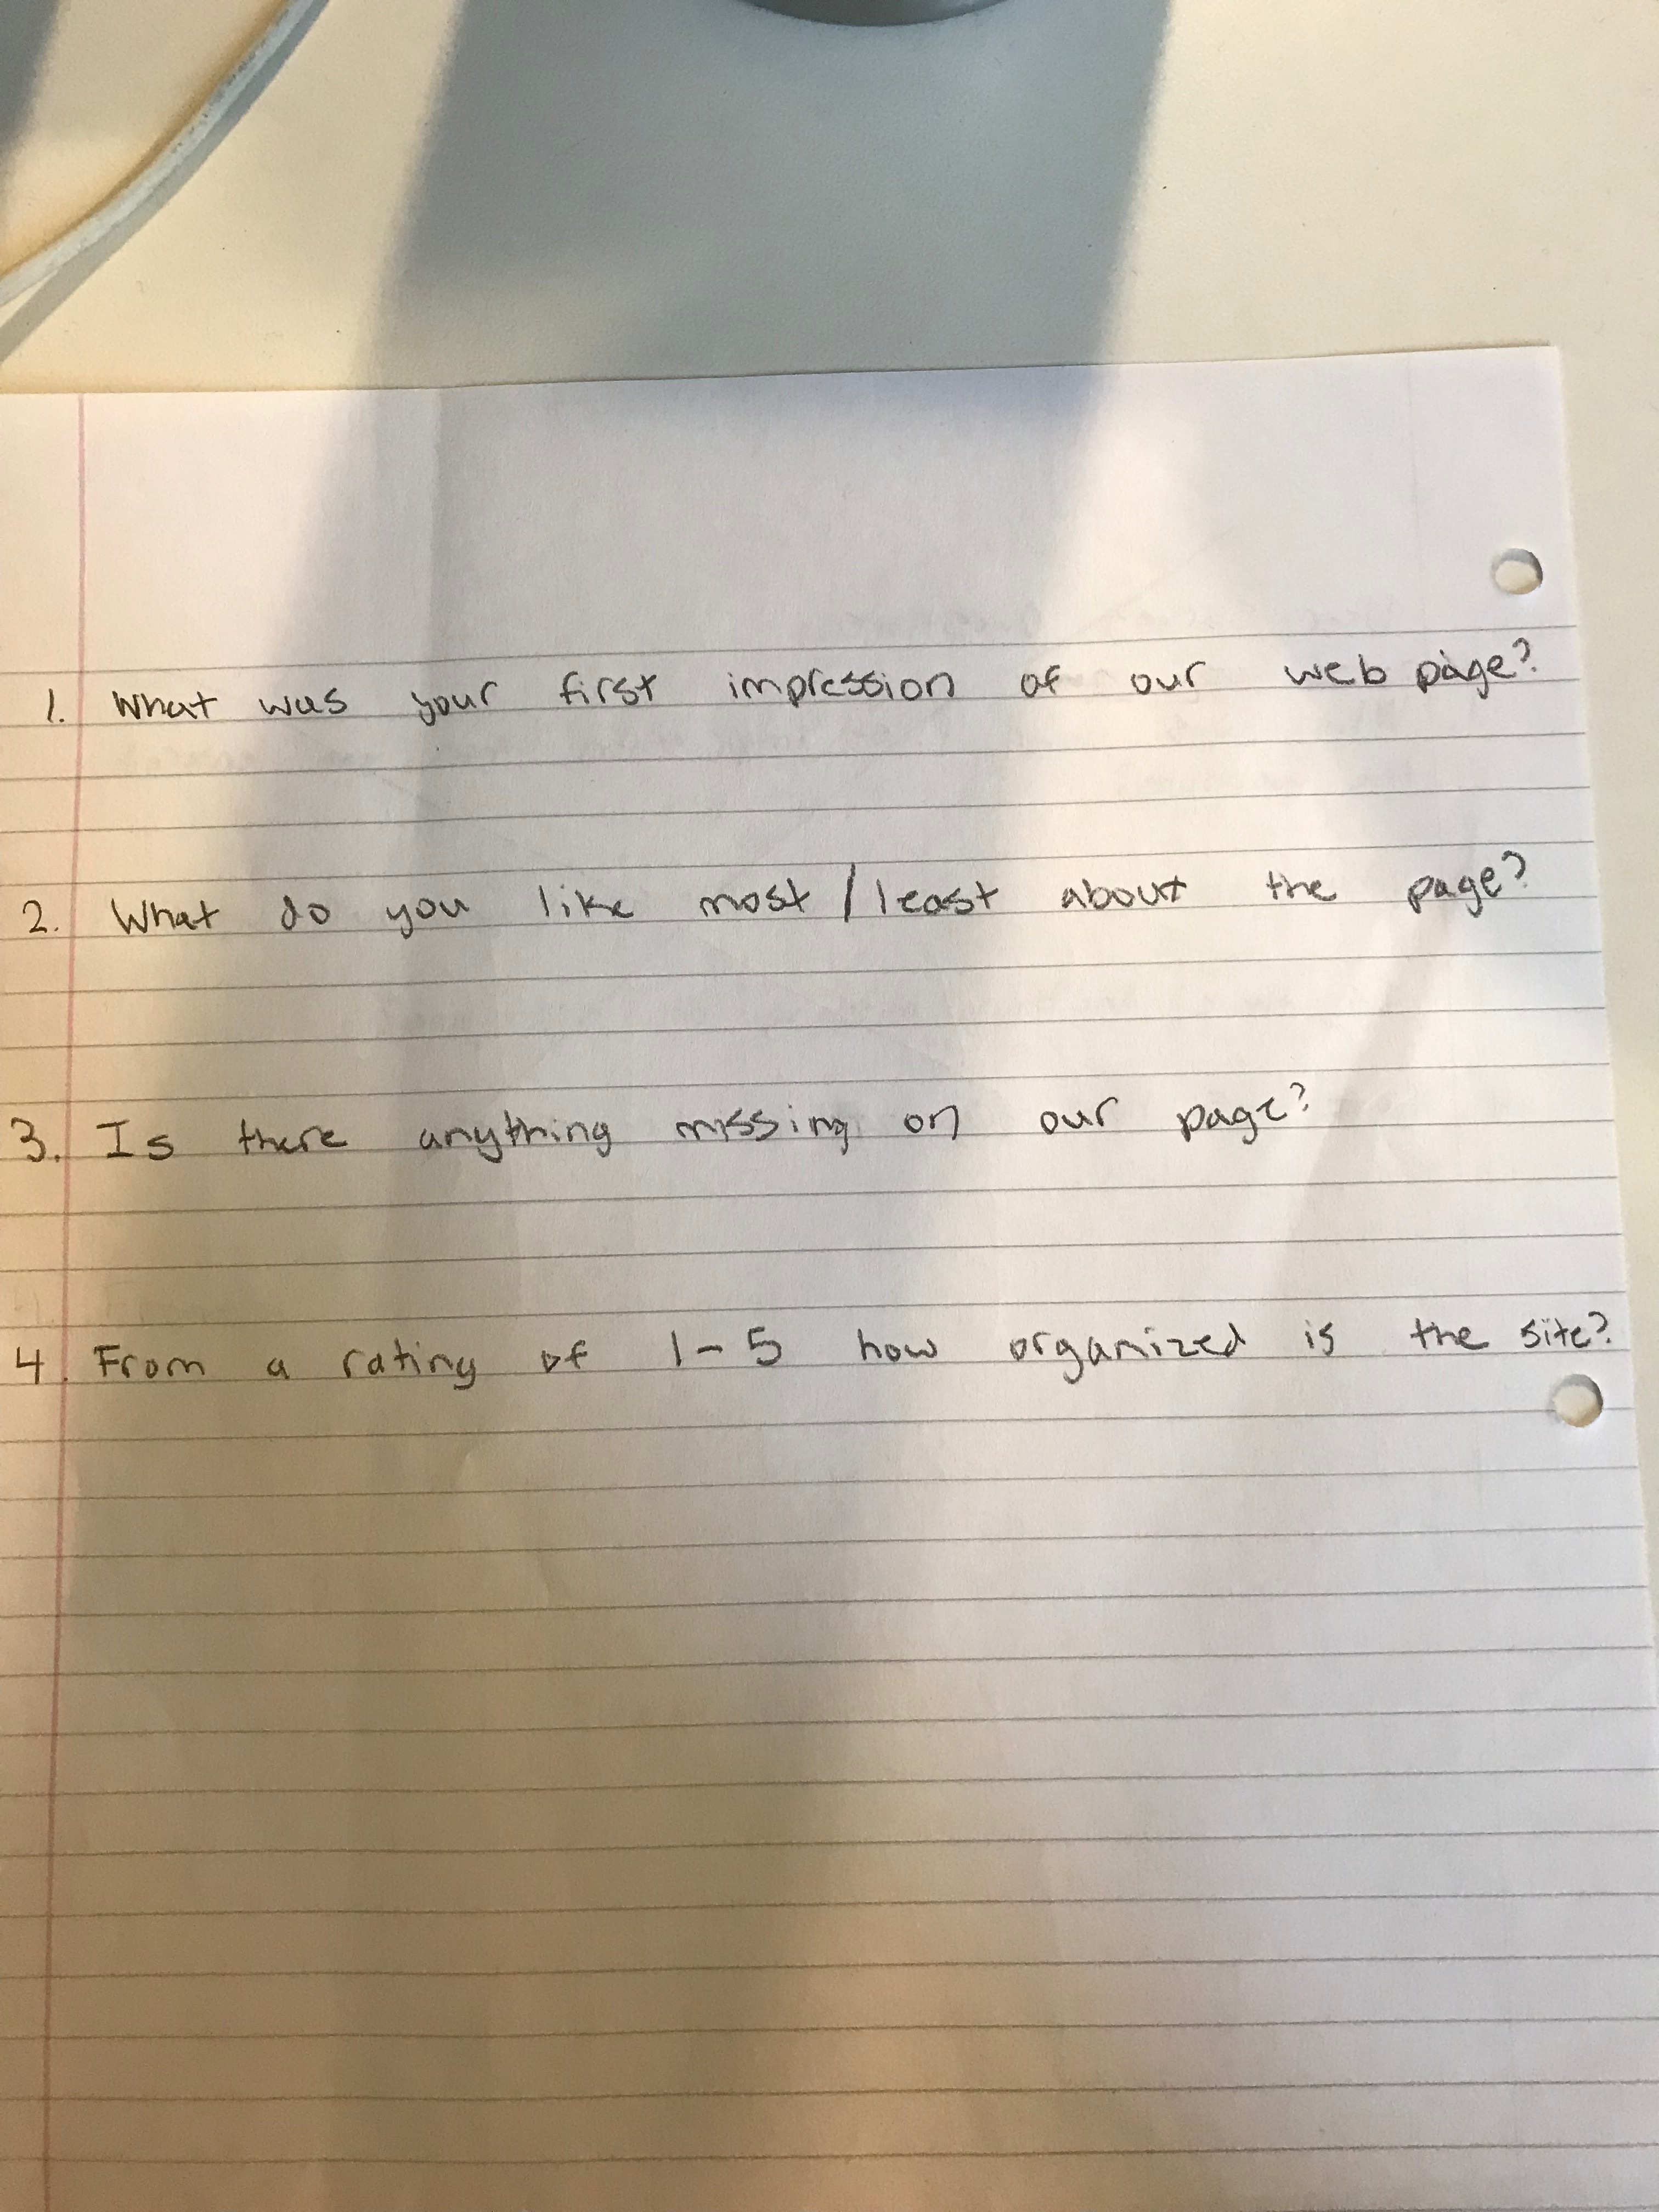 1. What was your first impression of our web page?
2. What do you like most / least about the page?
3. Is there anything missing on our page?
4. From a rating of 1-5 how organized is the site?